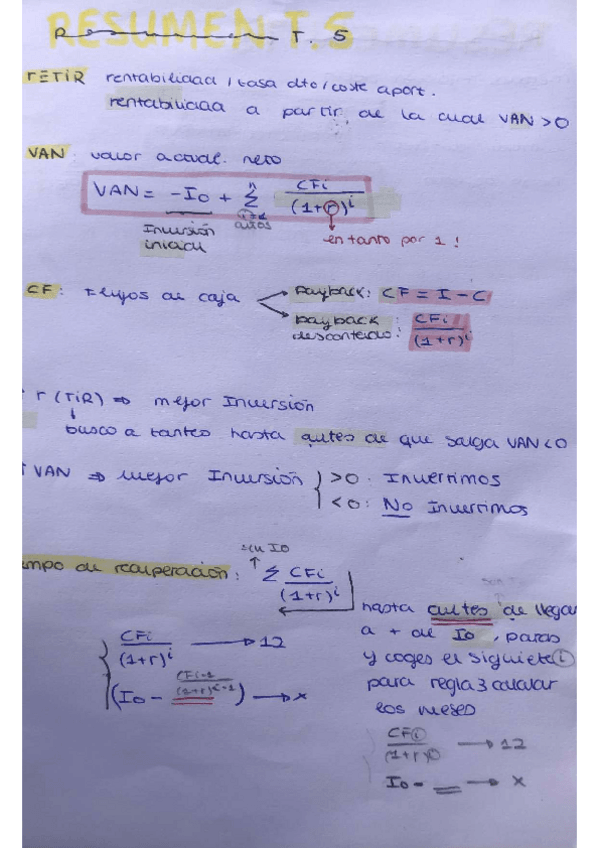 RESUMEN T.5
Resumen T. 5
r=TiR rentabilidad / tasa dto / coste aport.
rentabilidad a partir de la cual VAN > 0
VAN: valor actual neto
VAN = -Io + Σ CFi / (1+r)^i
n
i=1
años
Inversión
inicial
en tanto por 1!
CF: Flujos de caja
payback: CF = I - C
payback
descontado: CFi / (1+r)^i
↑ r (TiR) ⇒ mejor Inversión
↓
busco a tanteo hasta antes de que salga VAN<0
↑ VAN ⇒ mejor Inversión
>0: Invertimos
<0: No invertimos
sin IO
↑
empo de recuperación: Σ CFi / (1+r)^i
hasta antes de llegar
a + de Io, paras
y coges el siguiete (i)
para regla 3 calcular
los meses
CFi / (1+r)^i → 12
(Io - CFi-1 / (1+r)^i-1) → x
CFi / (1+r)^i → 12
Io - __ → x